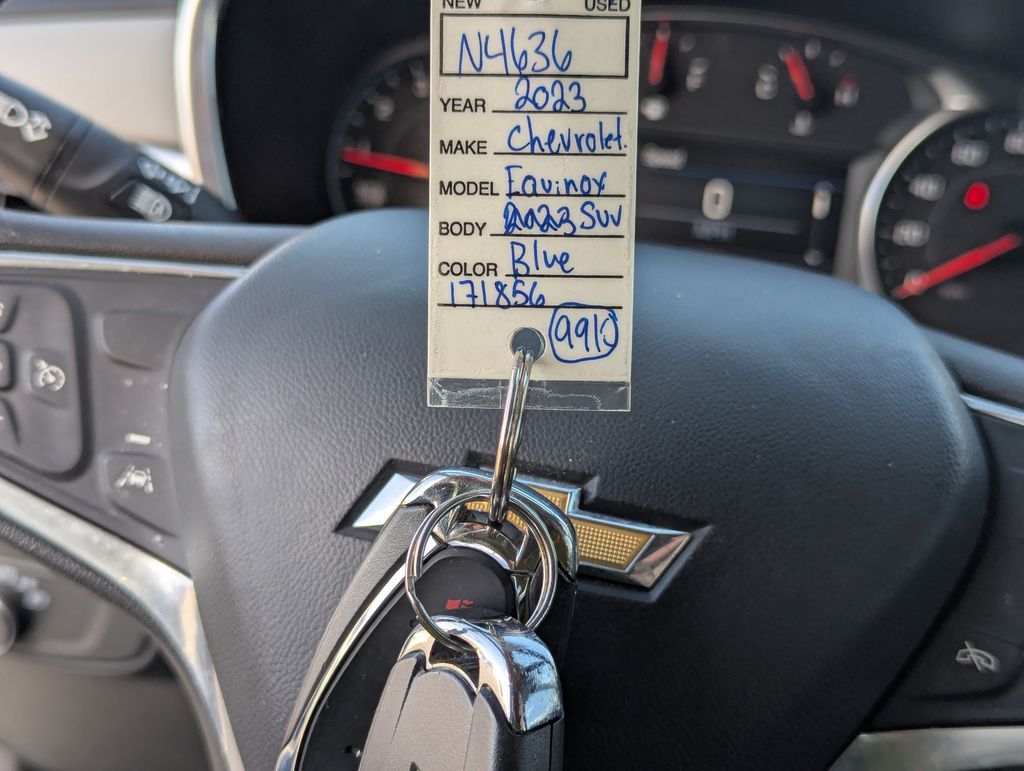 NEW USED
N4636
YEAR 2023
MAKE Chevrolet.
MODEL Equinox
BODY 2023 SUV
COLOR Blue
171856
0